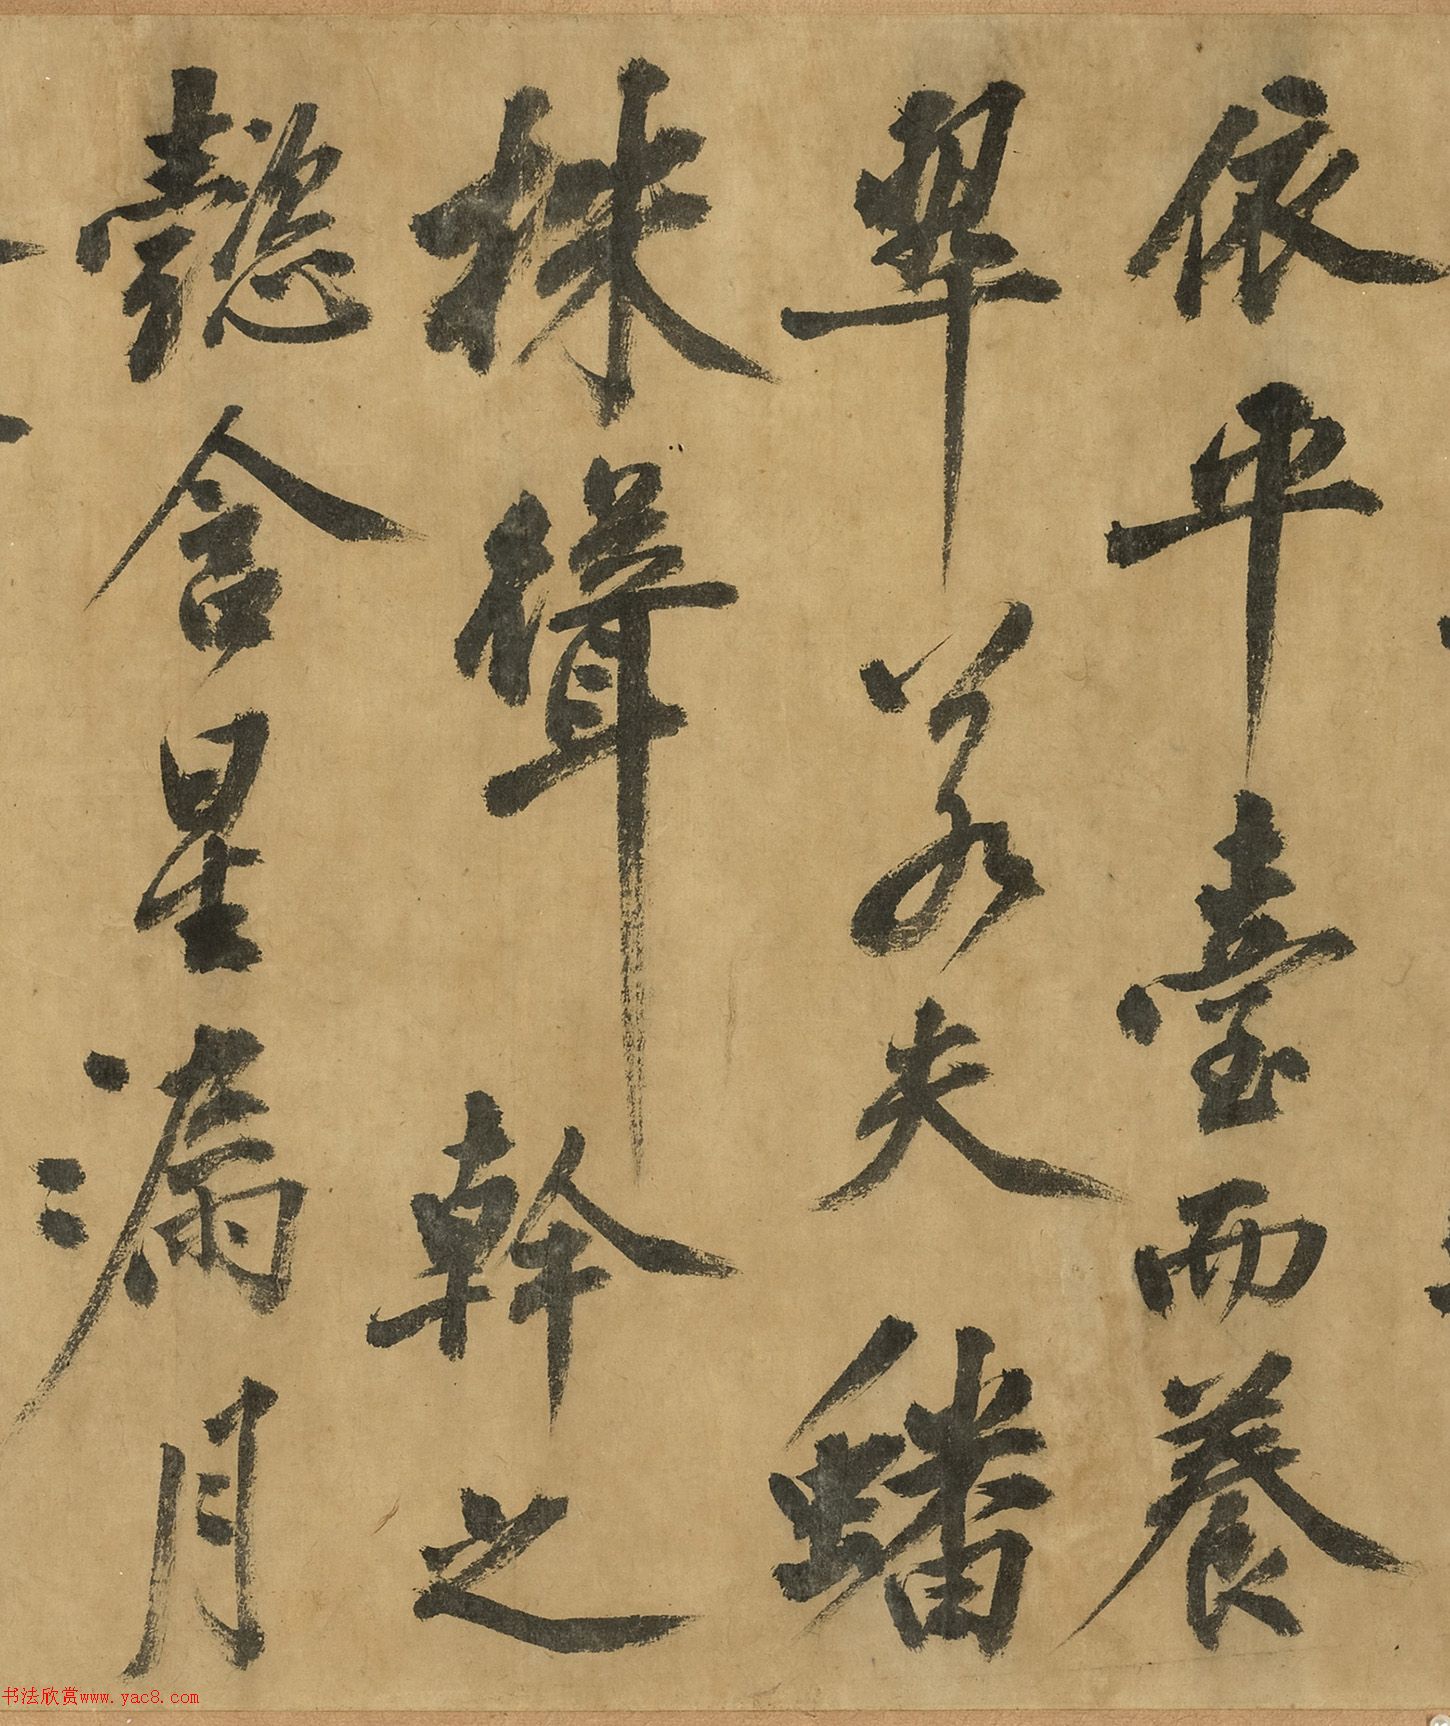 依平臺而養
翠若夫蟠
株聳幹之
懿含星漏月
书法欣赏www.yac8.com